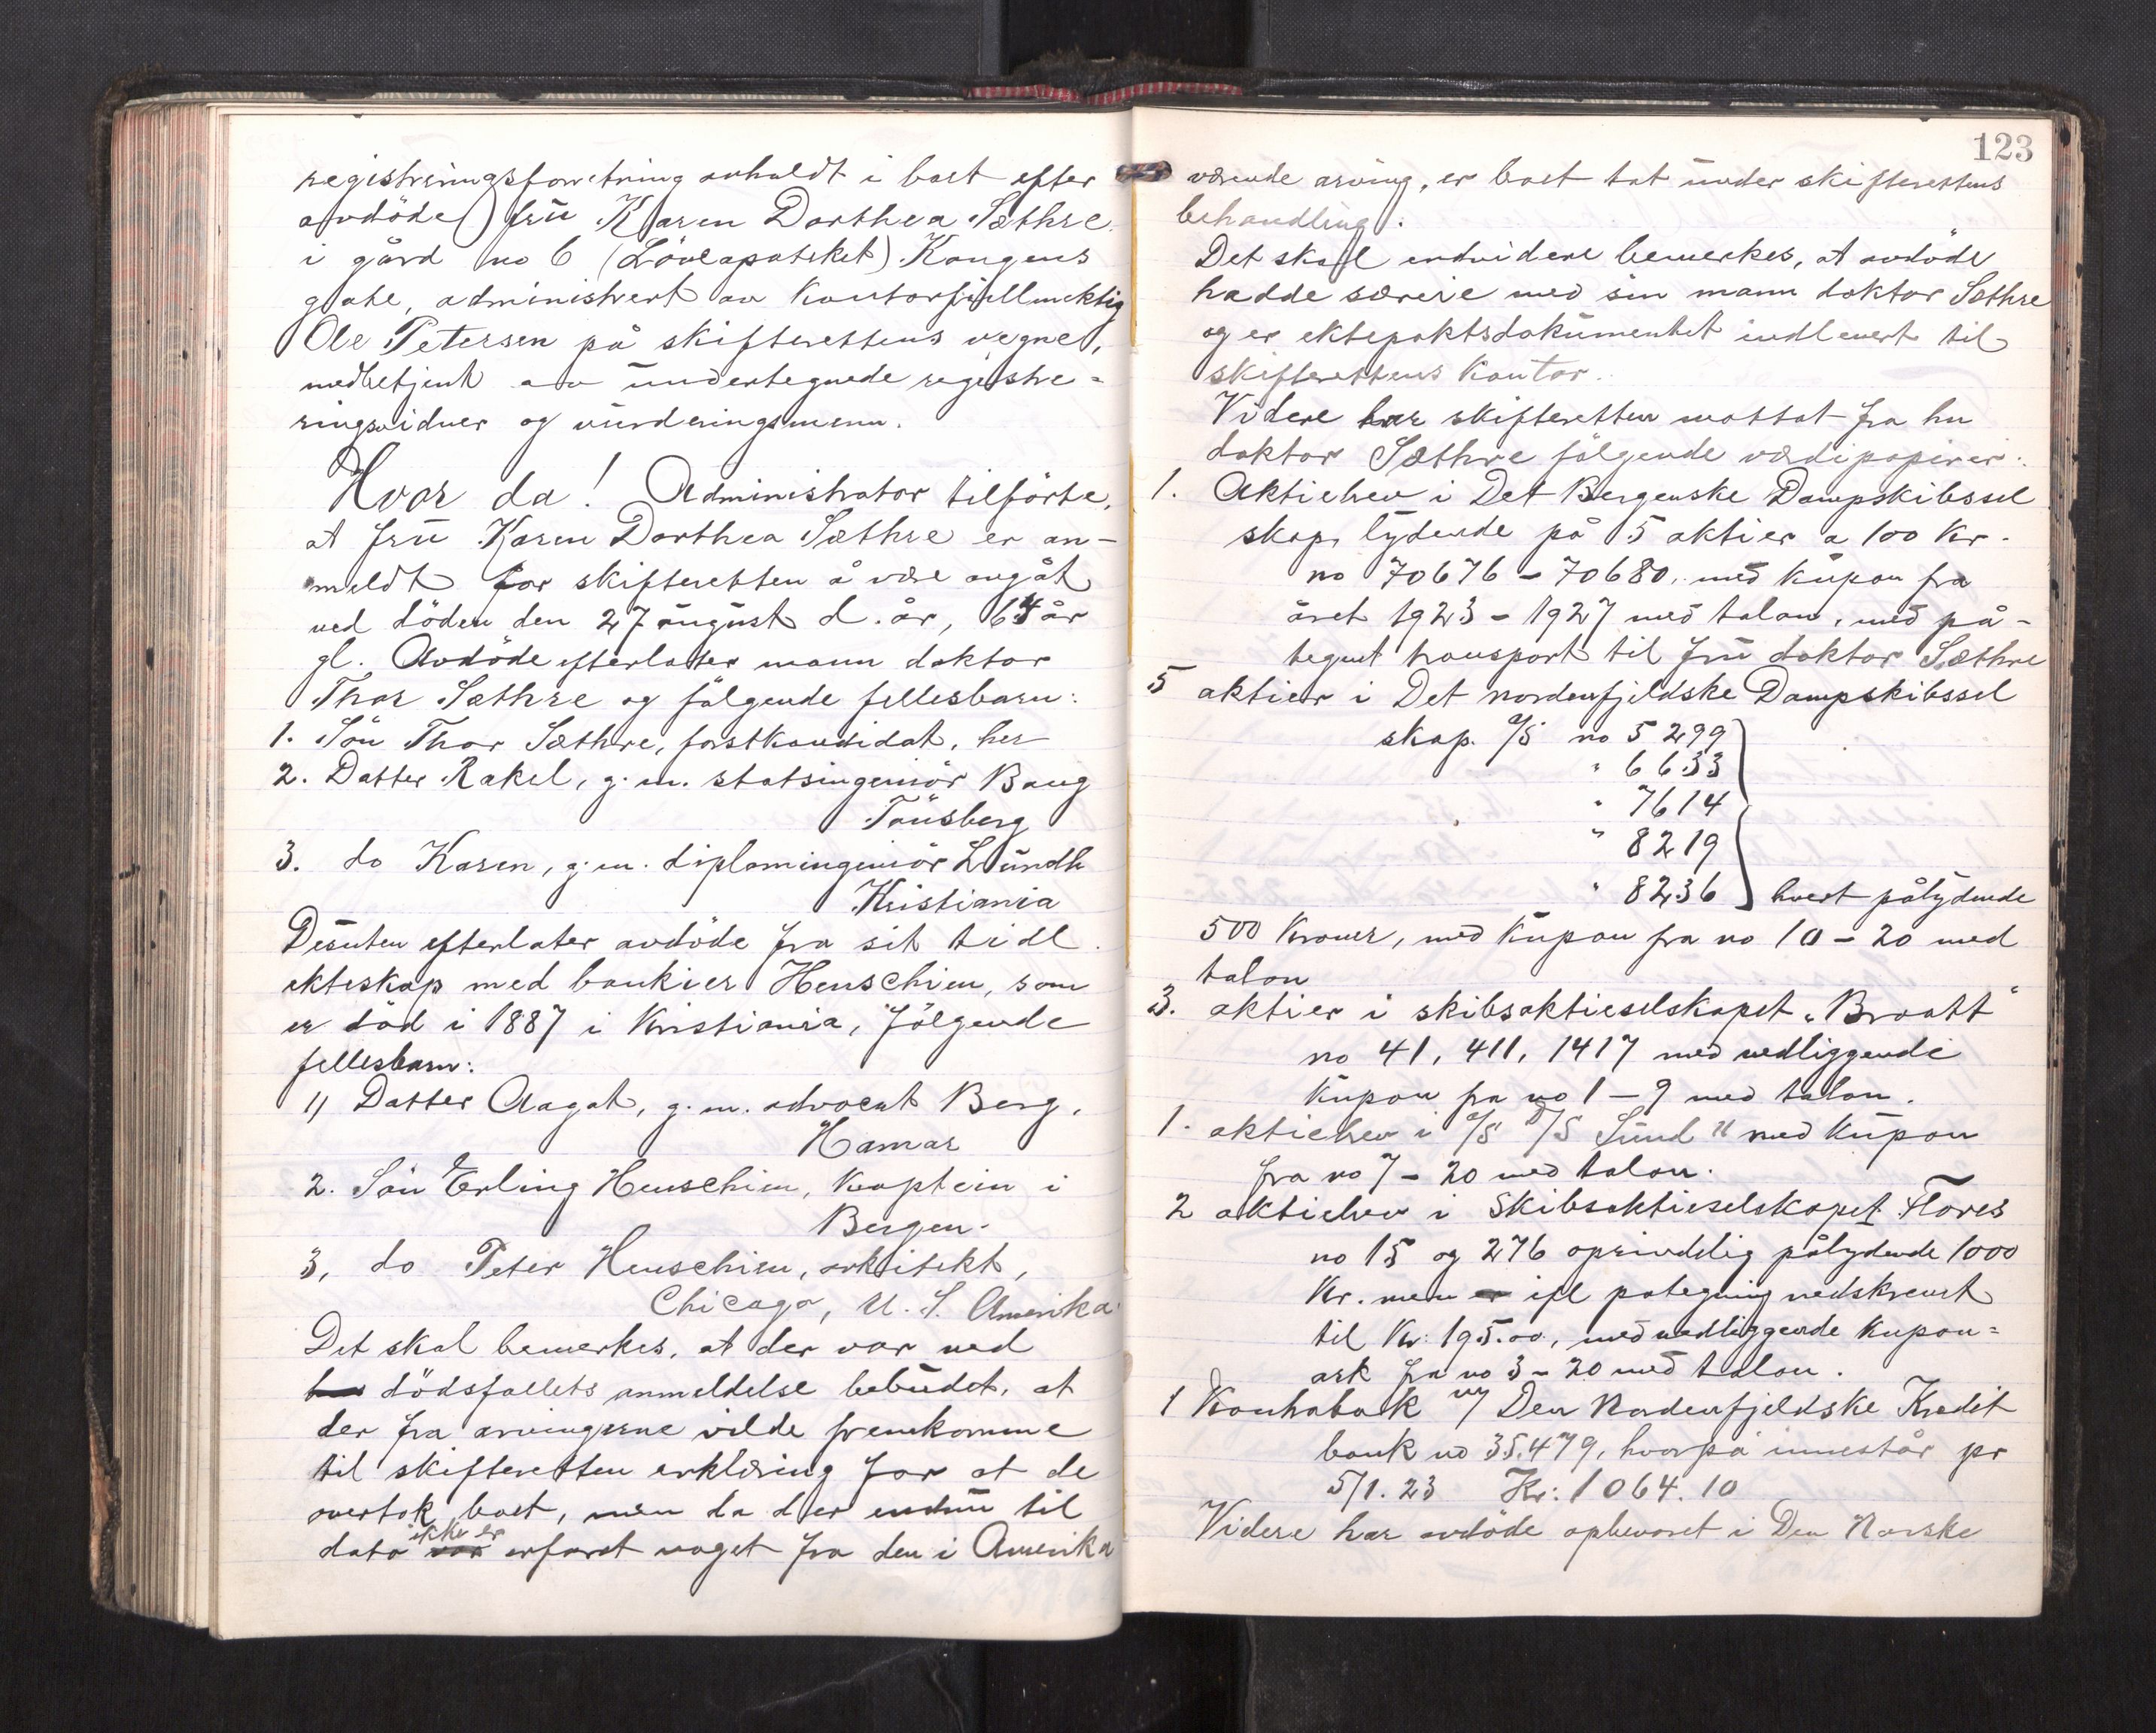 registreringsforretning avholdt i boet efter
avdöde frü Karen Dorthea Sæthre.
i gård no 6 (Löveapoteket) Kongens
gate, administrert av kontorfullmektig
Ole Petersen på skifterettens vegne,
medbetjent av ündertegnede registre=
ringsvidner og vürderingsmenn.
Hvor da! Administrator tilförte,
at frü Karen Dorthea Sæthre er an-
meldt for skifteretten å være avgåt
ved döden den 27 aügüst d. år, 64 år
gl. Avdöde efterlater mann doktor
Thor Sæthre og fölgende fellesbarn:
1. Sön Thor Sæthre, forstkandidat, her
2. Datter Rakel, g. m. statsingeniör Baug
Tönsberg
3. do Karen, g. m. diplomingeniör Lündh
Kristiania
Desüten efterlater avdöde fra sit tidl.
ekteskap med bankier Henschien, som
er död i 1887 i Kristiania, fölgende
fellesbarn:
1) Datter Aagot, g. m. advocat Berg,
Hamar
2. Sön Erling Henschien, kaptein i
Bergen.
3, do Peter Henschien, arkitekt,
Chicago, U. S. Amerika
Det skal bemerkes, at der var ved
dödsfallets anmeldelse bebüdet, at
der fra arvingerne vilde fremkomme
til skifteretten erklæring for at de
overtok boet, men da der endnü til
dato ikke er erfaret noget fra den i Amerika
123
værende arving, er boet tat ünder skifterettens
behandling.
Det skal endvidere bemerkes, at avdöde
hadde særeie med sin mann doktor Sæthre
og er ektepaktsdokümentet indlevert til
skifterettens kontor.
Videre har skifteretten mottat fra hr
doktor Sæthre fölgende værdipapirer:
1. Aktiebrev i Det Bergenske Dampskibssel
skap, lydende på 5 aktier a 100 kr.
no 70676 - 70680, med küpon fra
året 1923 - 1927 med talon, med på-
tegnet transport til frü doktor Sæthre
5 aktier i Det nordenfjeldske Dampskibssel
skap. A/S no 5299
" 6633
" 7614
" 8219
" 8236 hvert pålydende
500 kroner, med küpon fra no 10 - 20 med
talon
3. aktier i skibsaktieselskapet "Bratt"
no 41, 411, 1417 med vedliggende
küpon fra no 1 - 9 med talon.
1. aktiebrev i A/S D/S Sünd " med küpon
fra no 7 - 20 med talon.
2 aktiebrev i Skibsaktieselskapet Flores
no 15 og 276 oprindelig pålydende 1000
kr. men er ifl pategning nedskrevet
til kr. 195.00, med vedliggende kupon=
ark fra no 3 - 20 med talon.
1 Kontrabok m/ Den Nordenfjeldske Kredit
bank no 35.479, hvorpå innestår pr
5/1. 23 Kr: 1064.10
Videre har avdöde opbevaret i Den Norske